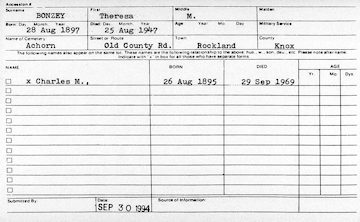 Accession #
Surname First Middle Maiden
BONZEY Theresa M.
Born: Day Month Year Died: Day Month Year Age: Year Mo. Day Military Service
28 Aug 1897 25 Aug 1947
Name of Cemetery Street or Route Town County
Achorn Old County Rd. Rockland Knox
The following names also appear on the same lot. These names are the following relationship to the above: hus., w., son, dau., etc. Please note alternate name.
Indicate with "x" in box for all those who have separate forms.
NAME BORN DIED AGE
Yr. Mo. Dys
x Charles M., 26 Aug 1895 29 Sep 1969
Submitted By Date Source of Information:
SEP 30 1994